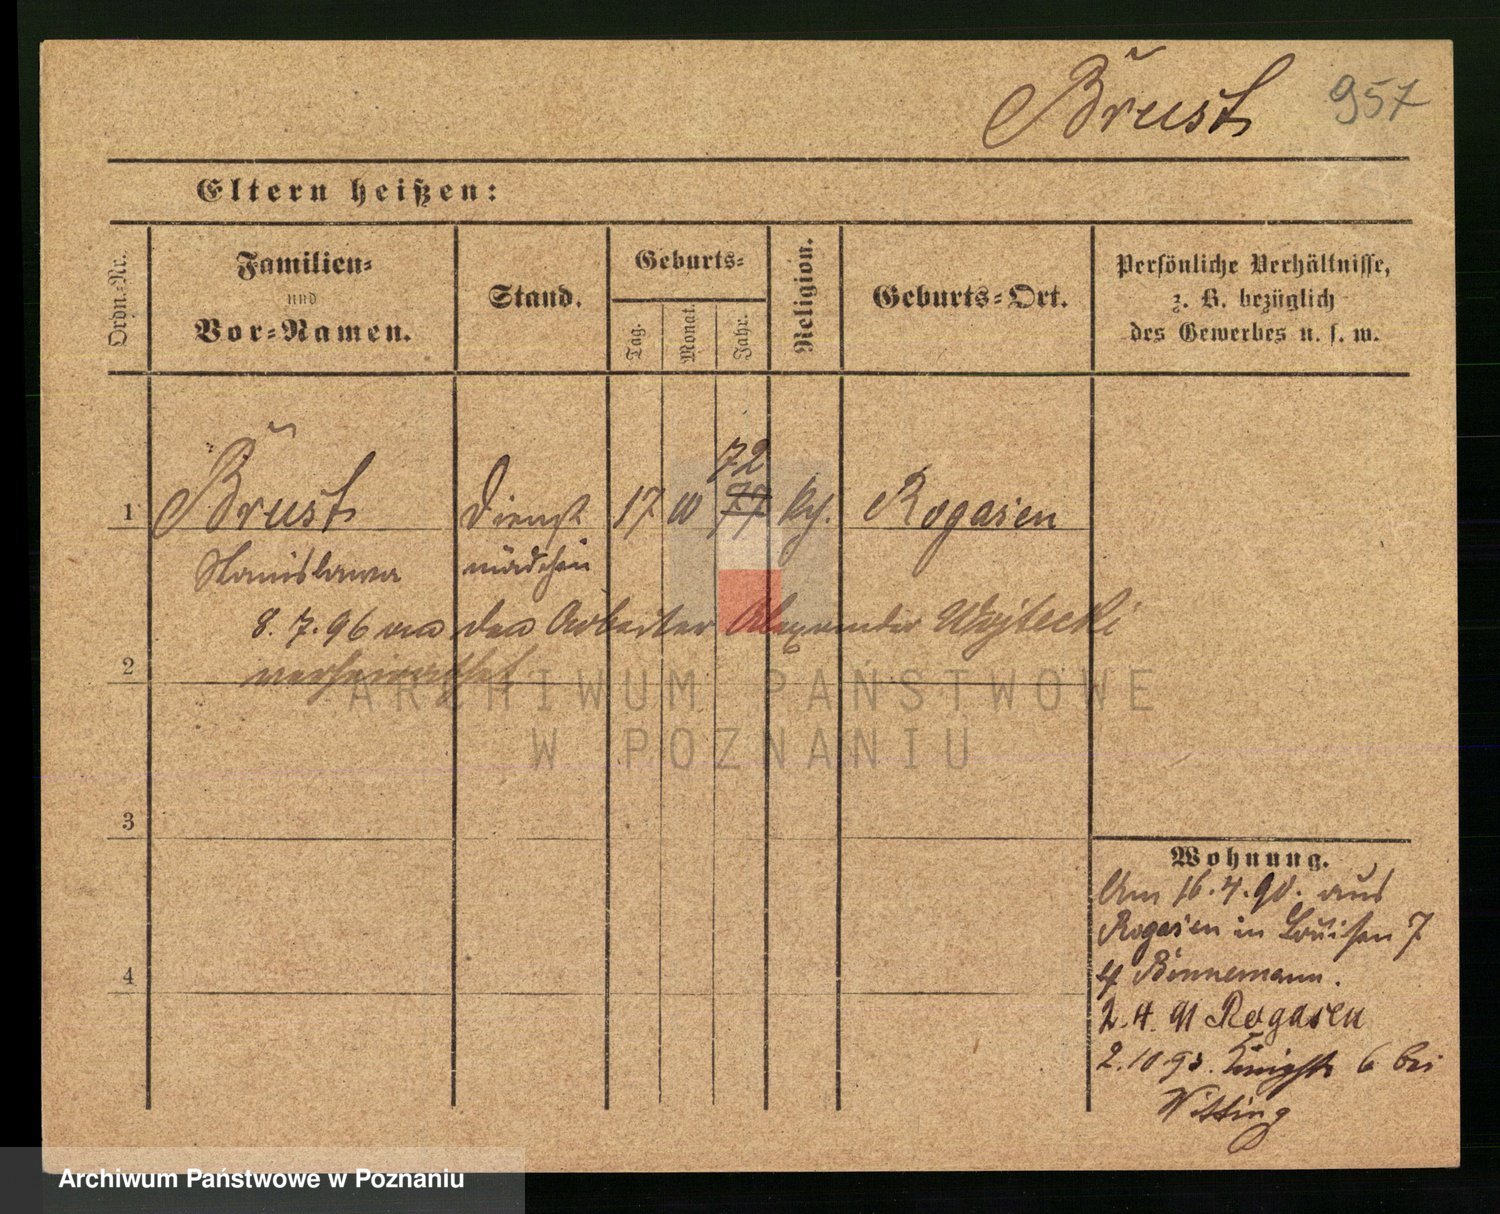 Brust 957
Eltern heißen:
Ordn.-Nr.
Familien-
und
Vor-Namen.
Stand.
Geburts-
Tag.
Monat.
Jahr.
Religion.
Geburts-Ort.
Persönliche Verhältnisse,
z. B. bezüglich
des Gewerbes u. s. w.
72
1 Brust Dienst 17 10 77 Rogasen
Stanislawa mädchen
8. 7. 96 an den Arbeiter Alexander Wojtecki
2 verheirathet
ARCHIWUM PAŃSTWOWE
W POZNANIU
3
4
Wohnung.
Am 16.4.90. aus
Rogasen in Louisen 7
Binnemann.
2.4.91 Rogasen
2.10.93. 6 bei
Witting
Archiwum Państwowe w Poznaniu